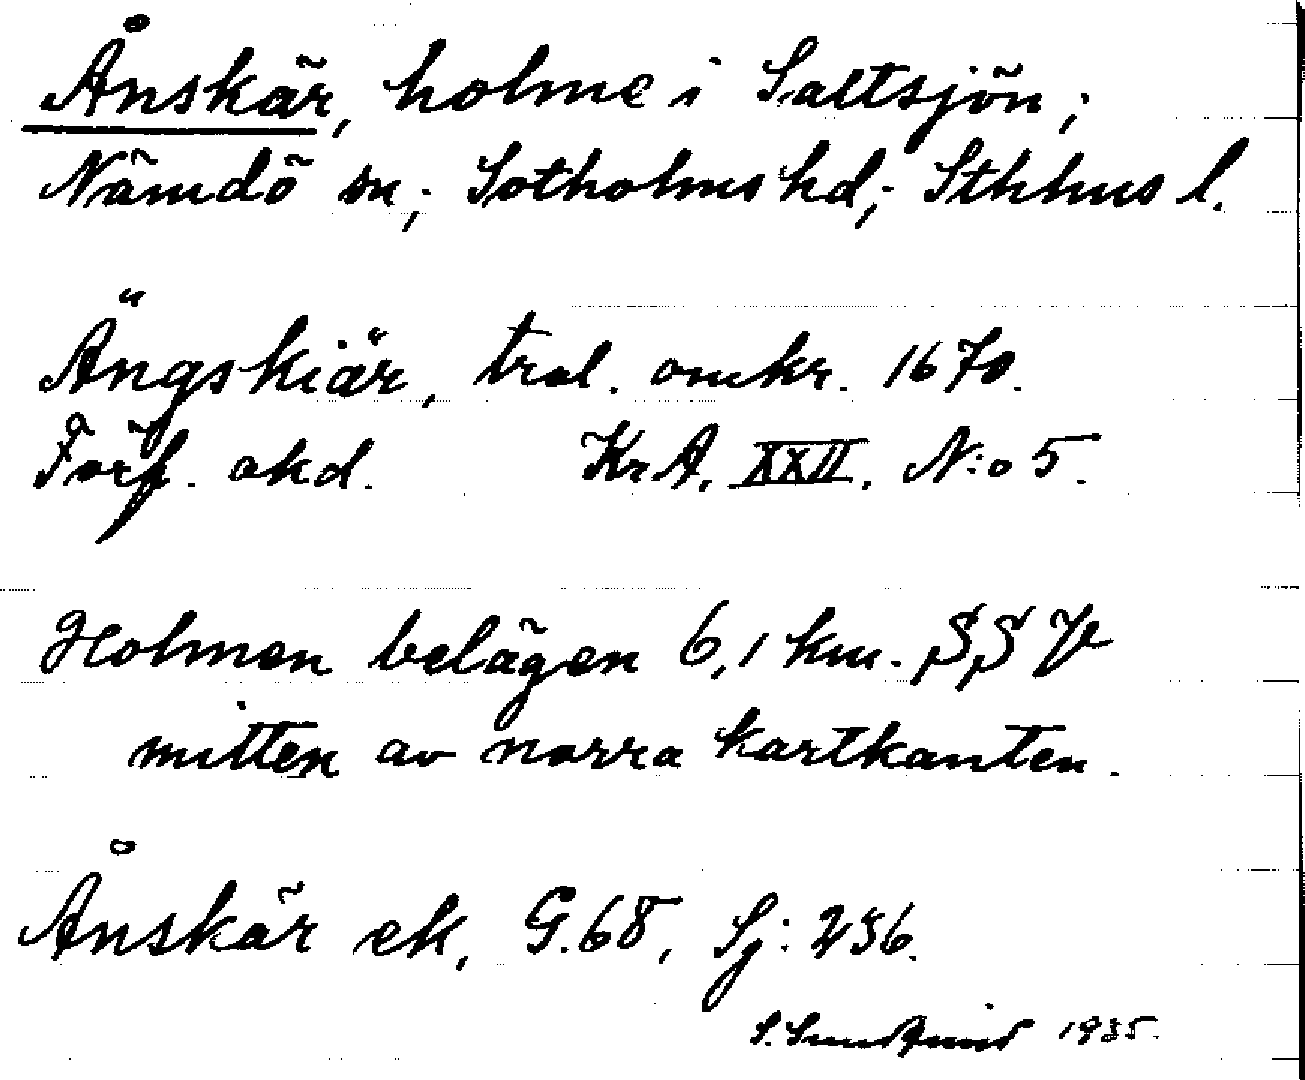 Ånskär, holme i Saltsjön;
Nämdö sn; Sotholms hd; Sthlms l.
Ängskiär, trol. omkr. 1670.
Förf. okd. KrA. XXII. N:o 5.
Holmen belägen 6,1 km. SSV
mitten av norra kartkanten.
Ånskär ek, G.68, Sj: 236.
S. Sundqvist 1935.